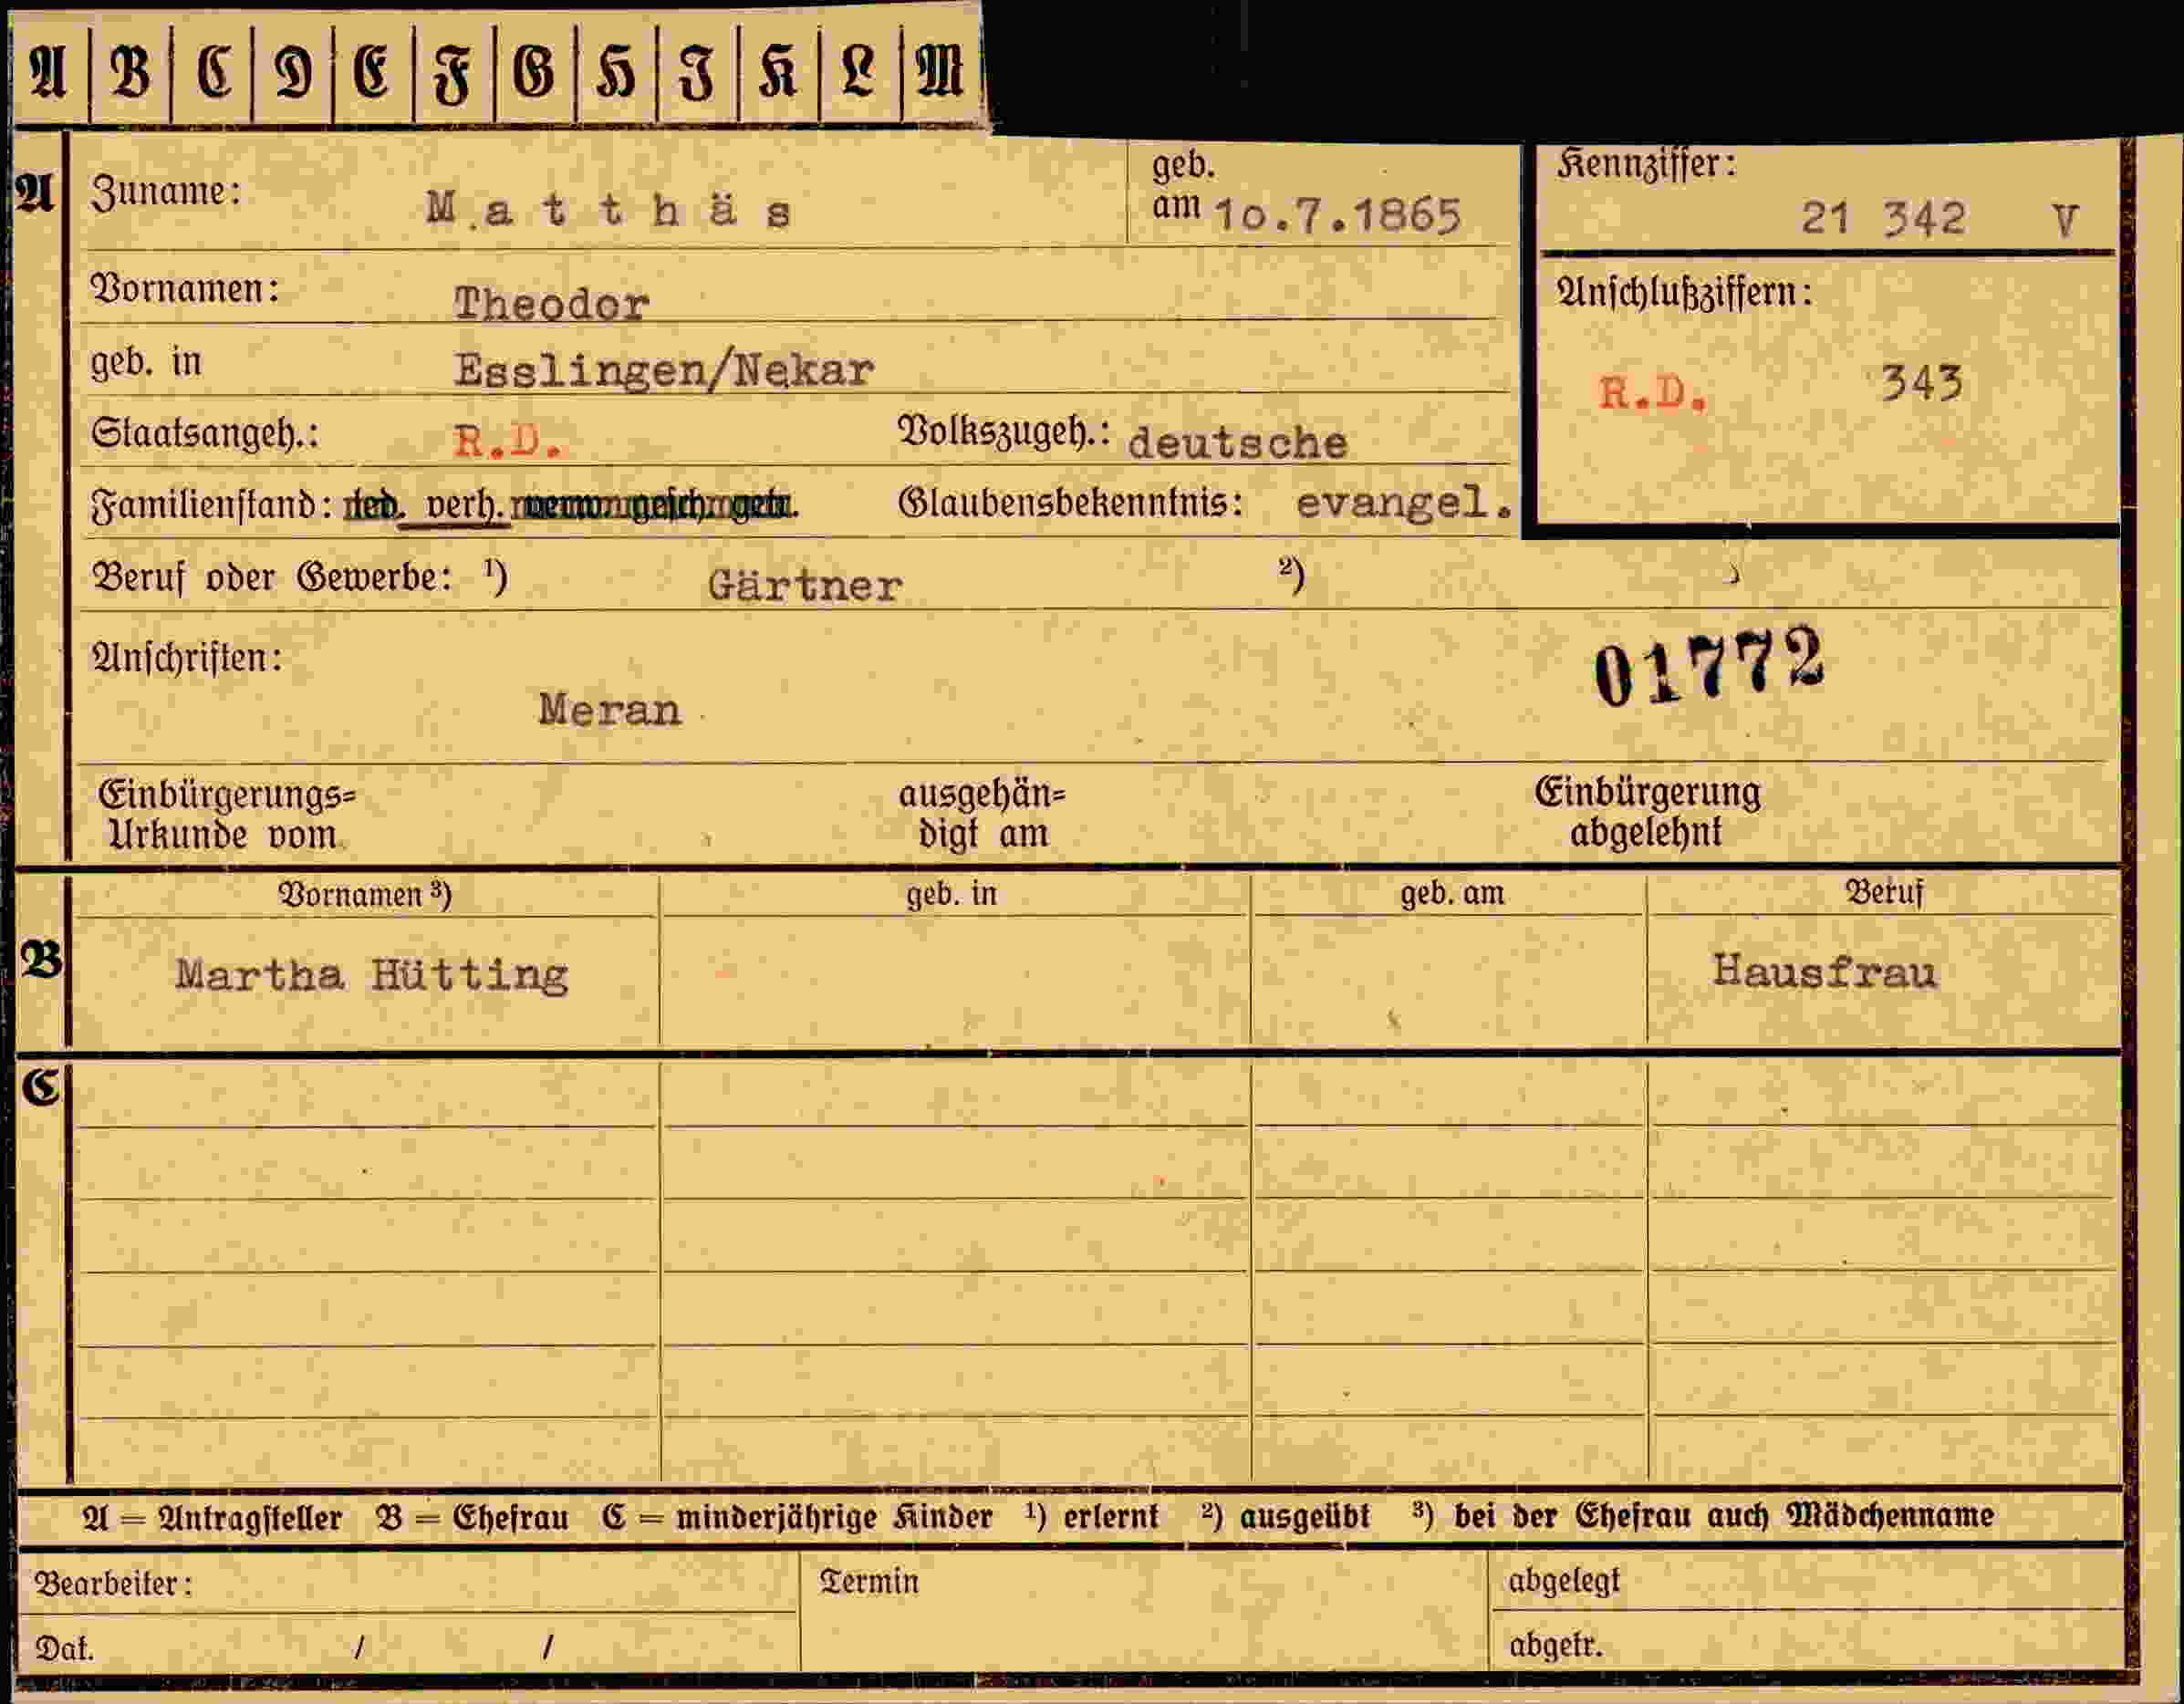 A B C D E F G H I K L M
A Zuname: M a t t h ä s geb. am 1o.7.1865
Kennziffer: 21 342 V
Vornamen: Theodor
geb. in Esslingen/Nekar
Staatsangeh.: R.D. Volkszugeh.: deutsche
Anschlußziffern:
R.D. 343
Familienstand: led. verh. Glaubensbekenntnis: evangel.
Beruf oder Gewerbe: ¹) Gärtner ²)
Anschriften:
Meran
01772
Einbürgerungs=
Urkunde vom
ausgehän=
digt am
Einbürgerung
abgelehnt
Vornamen ³) geb. in geb. am Beruf
B Martha Hütting Hausfrau
C
A = Antragsteller B = Ehefrau C = minderjährige Kinder ¹) erlernt ²) ausgeübt ³) bei der Ehefrau auch Mädchenname
Bearbeiter: Termin abgelegt
Dat. / / abgetr.